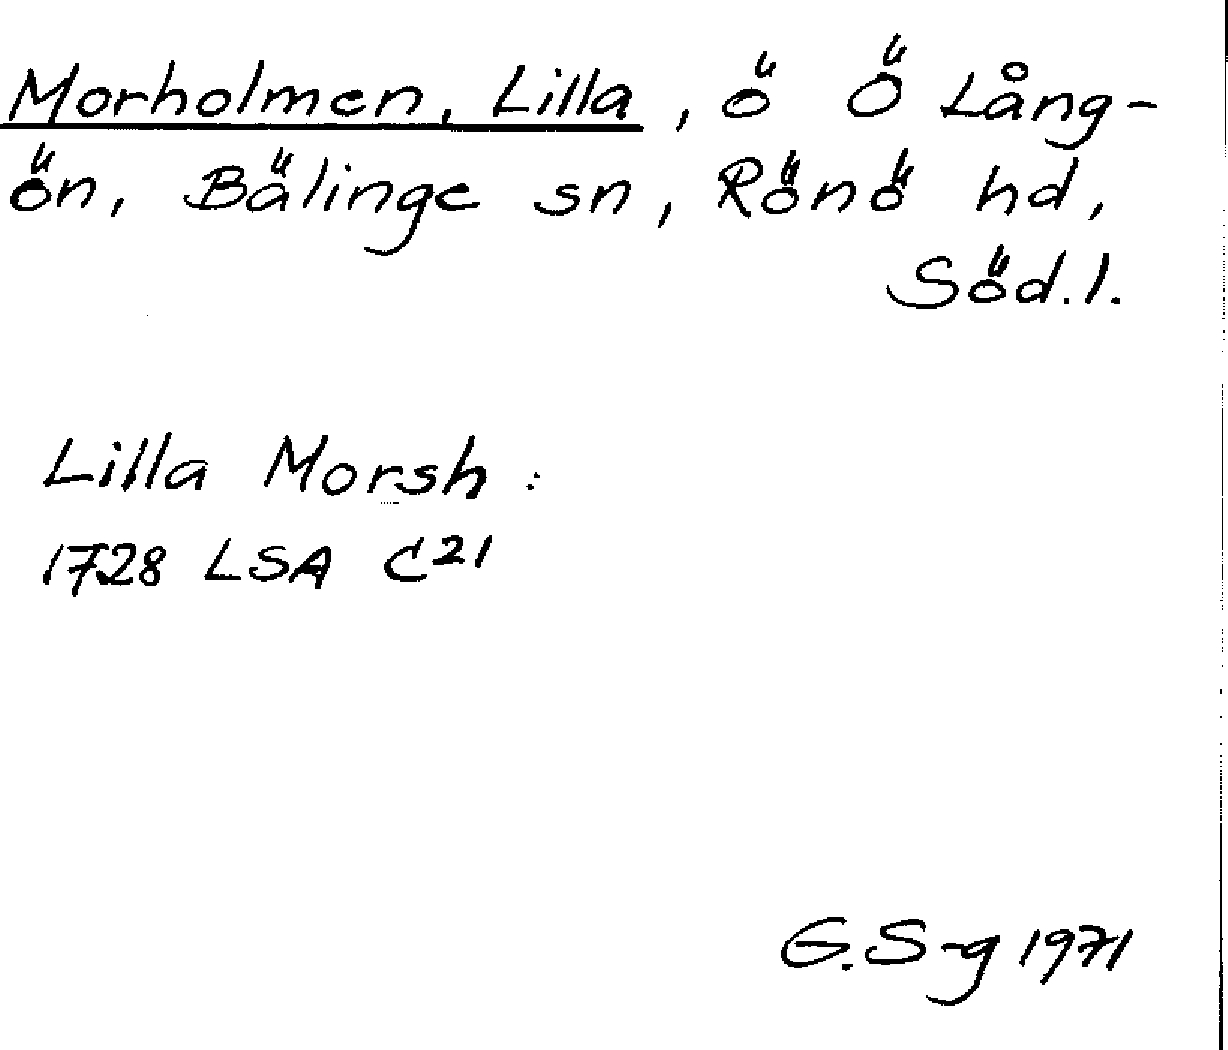 Morholmen, Lilla, ö Ö Lång-
ön, Bälinge sn, Rönö hd,
Söd.l.
Lilla Morsh:
1728 LSA C21
G.S-g 1971